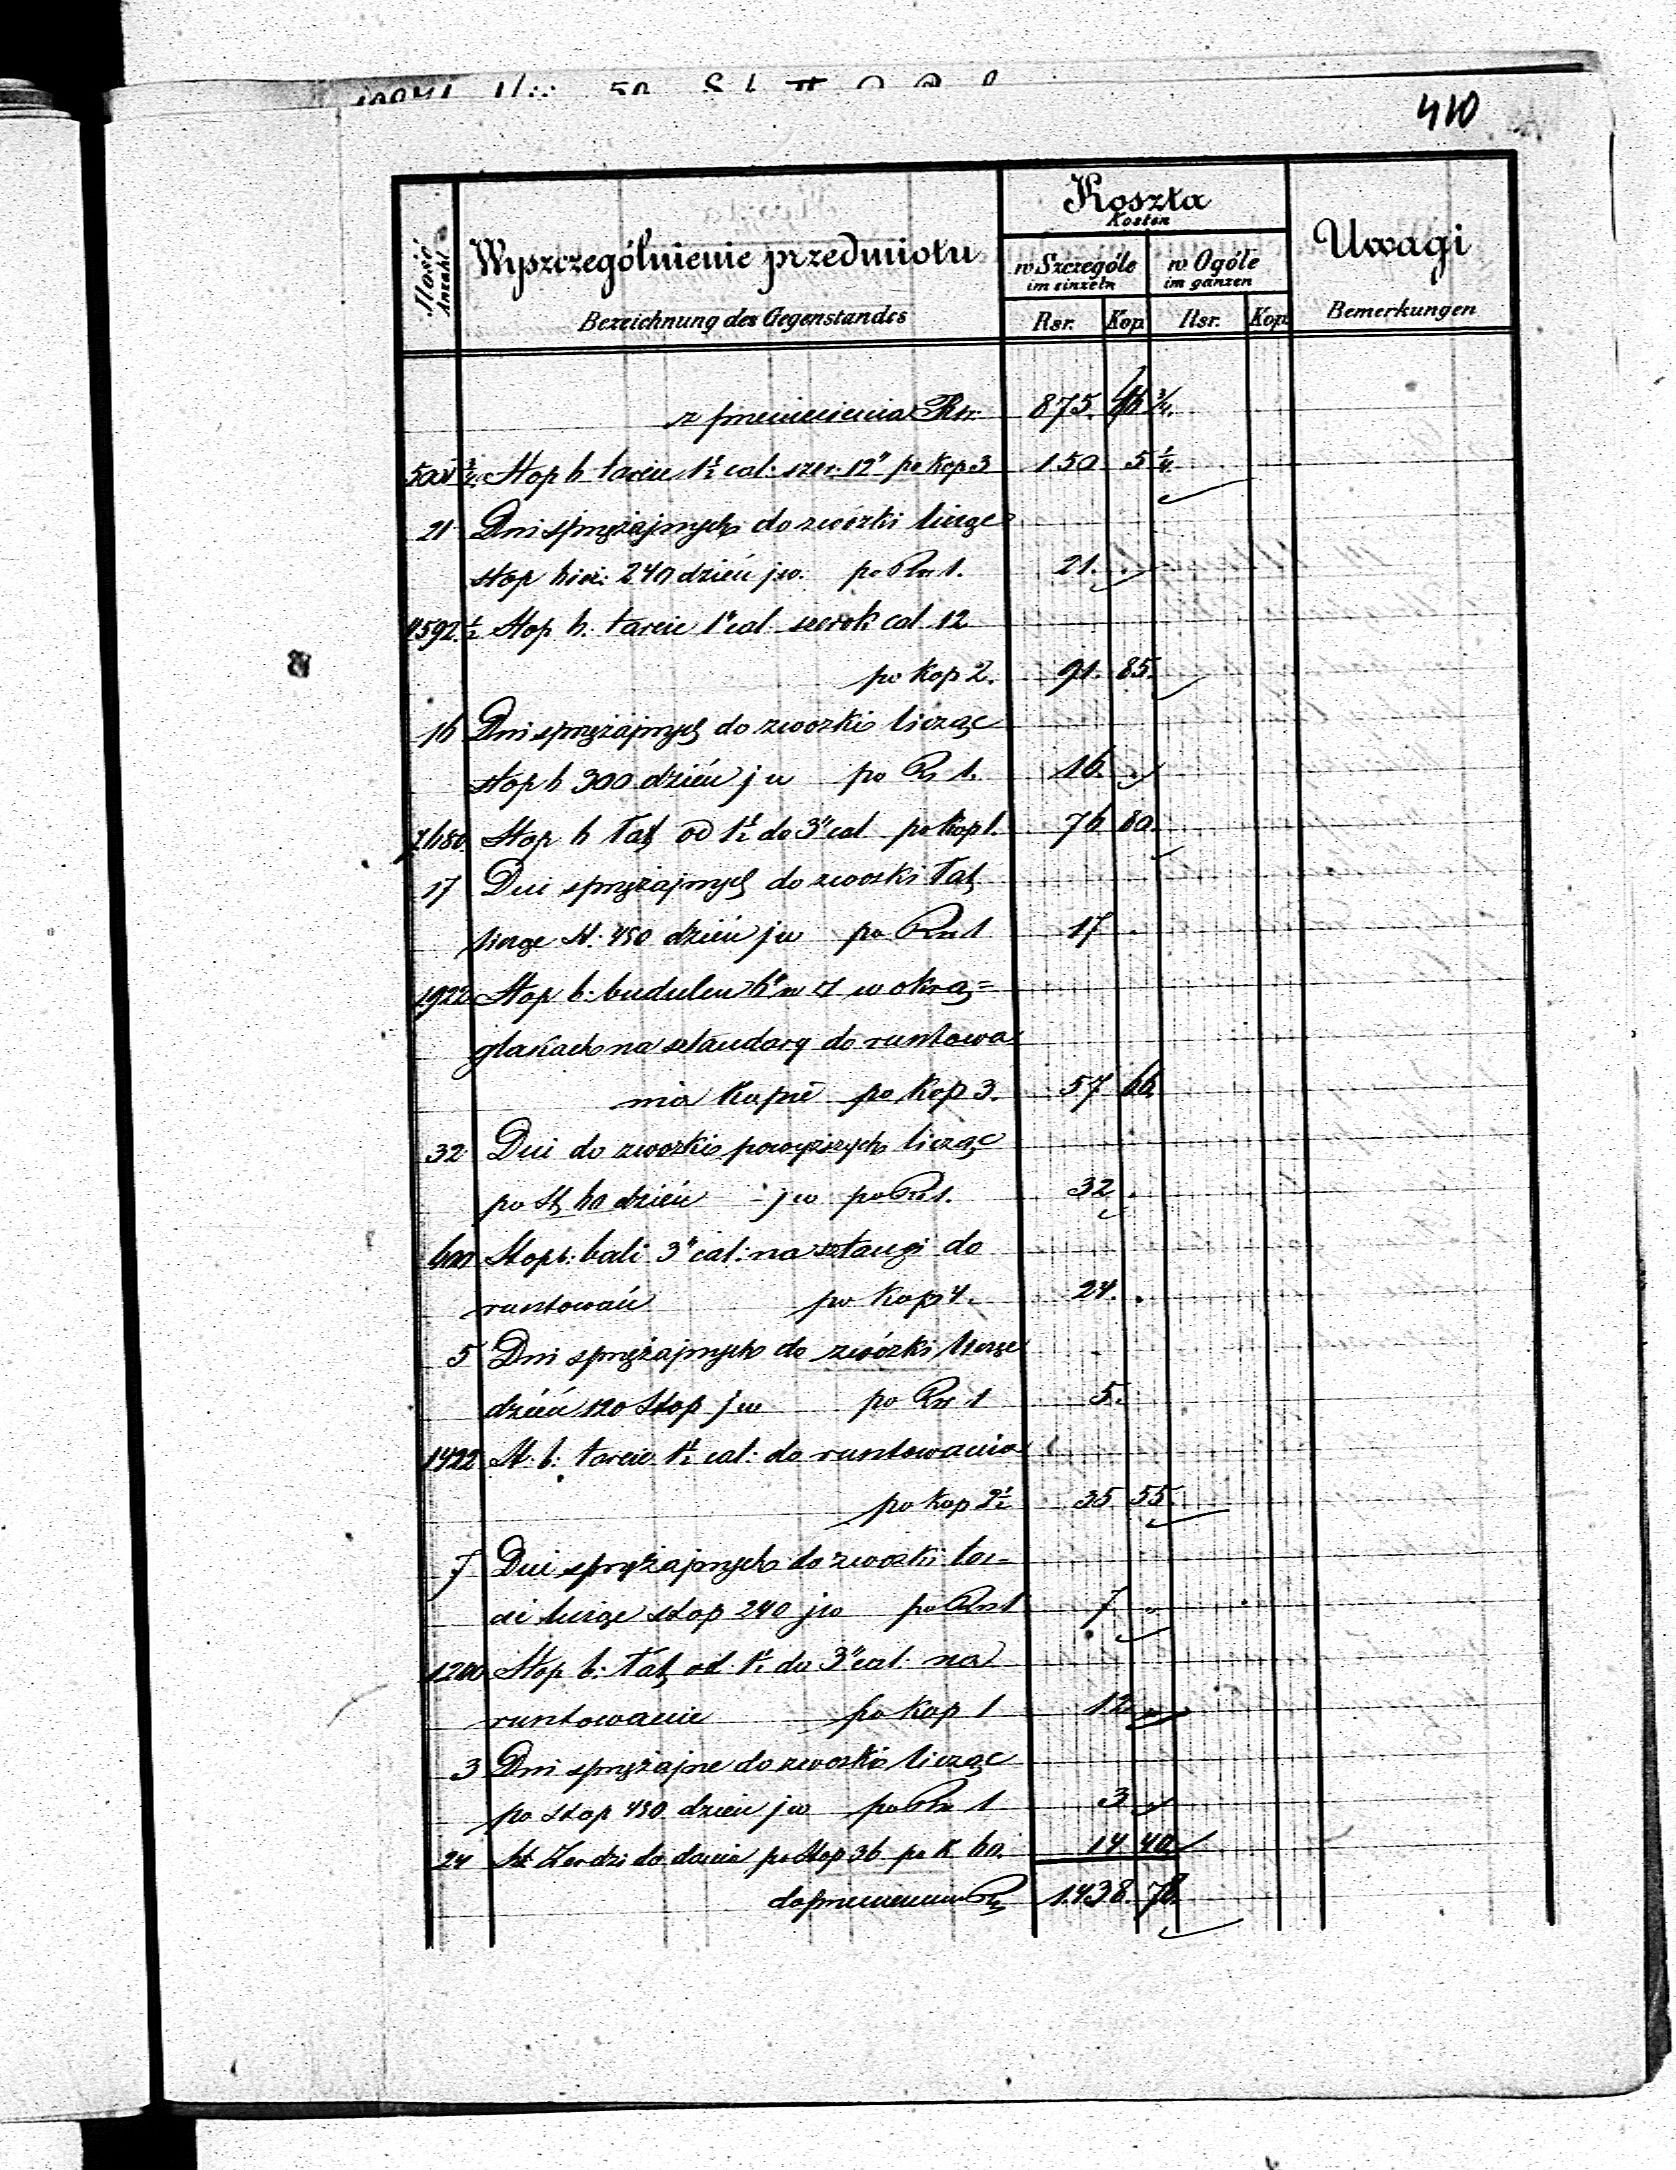 410
Ilość
Anzahl
Wyszczególnienie przedmiotu
Bezeichnung des Gegenstandes
Koszta
Kosten
w Szczególe
im einzeln
w Ogóle
im ganzen
Rsr. Kop Rsr. Kop
Uwagi
Bemerkungen
z przeniesienia Rsr. 875. 46 3/4.
Stop b tarcic 1 1/2 cal: szer: 12" po kop 3 150 5 1/4.
21 Dni sprzężajnych do zwózki licząc
stop bież: 240 dzień jw. po Rsr 1. 21. "
4592 1/2 Stop b. tarcic 1" cal szerok cal 12
po kop 2. 91. 85.
16 Dni sprzężajnych do zwozki licząc
stop b 300 dzień jw po Rs 1. 16. "
7680. Stop b Łat od 1 1/2 do 3" cal po kop 1. 76 80.
17 Dni sprzężajnych do zwozki Łat
licząc st. 450 dzień jw po Rsr 1 17 "
1922 Stop b. budulcu 6" w okrą=
glakach na sztandary do runtowa
nia po kop 3. 57 66.
32 Dni do zwozki powyższych licząc
po St 60 dzień jw po Rsr 1. 32 "
600 Stop b: bali 3" cal: na sztangi do
runtowań po kop 4. 24. "
5 Dni sprzężajnych do zwózki licząc
dzień 120 Stop jw po Rsr 1 5. "
1422 St. b: tarcic 1 1/2 cal: do runtowania
po kop 2 1/2 35 55.
7 Dni sprzężajnych do zwozki tar=
cic licząc stop 240 jw po Rsr 1 7 "
1200 Stop b: Łat od 1 1/2 do 3" cal. na
runtowanie po kop 1 12 "
3 Dni sprzężajne do zwozki licząc
po stop 450 dzień jw po Rsr 1 3 "
24 Szt Żerdzi do po Stop 36 po K 60. 14 40
do przeniesienia Rs 1.438. 78.